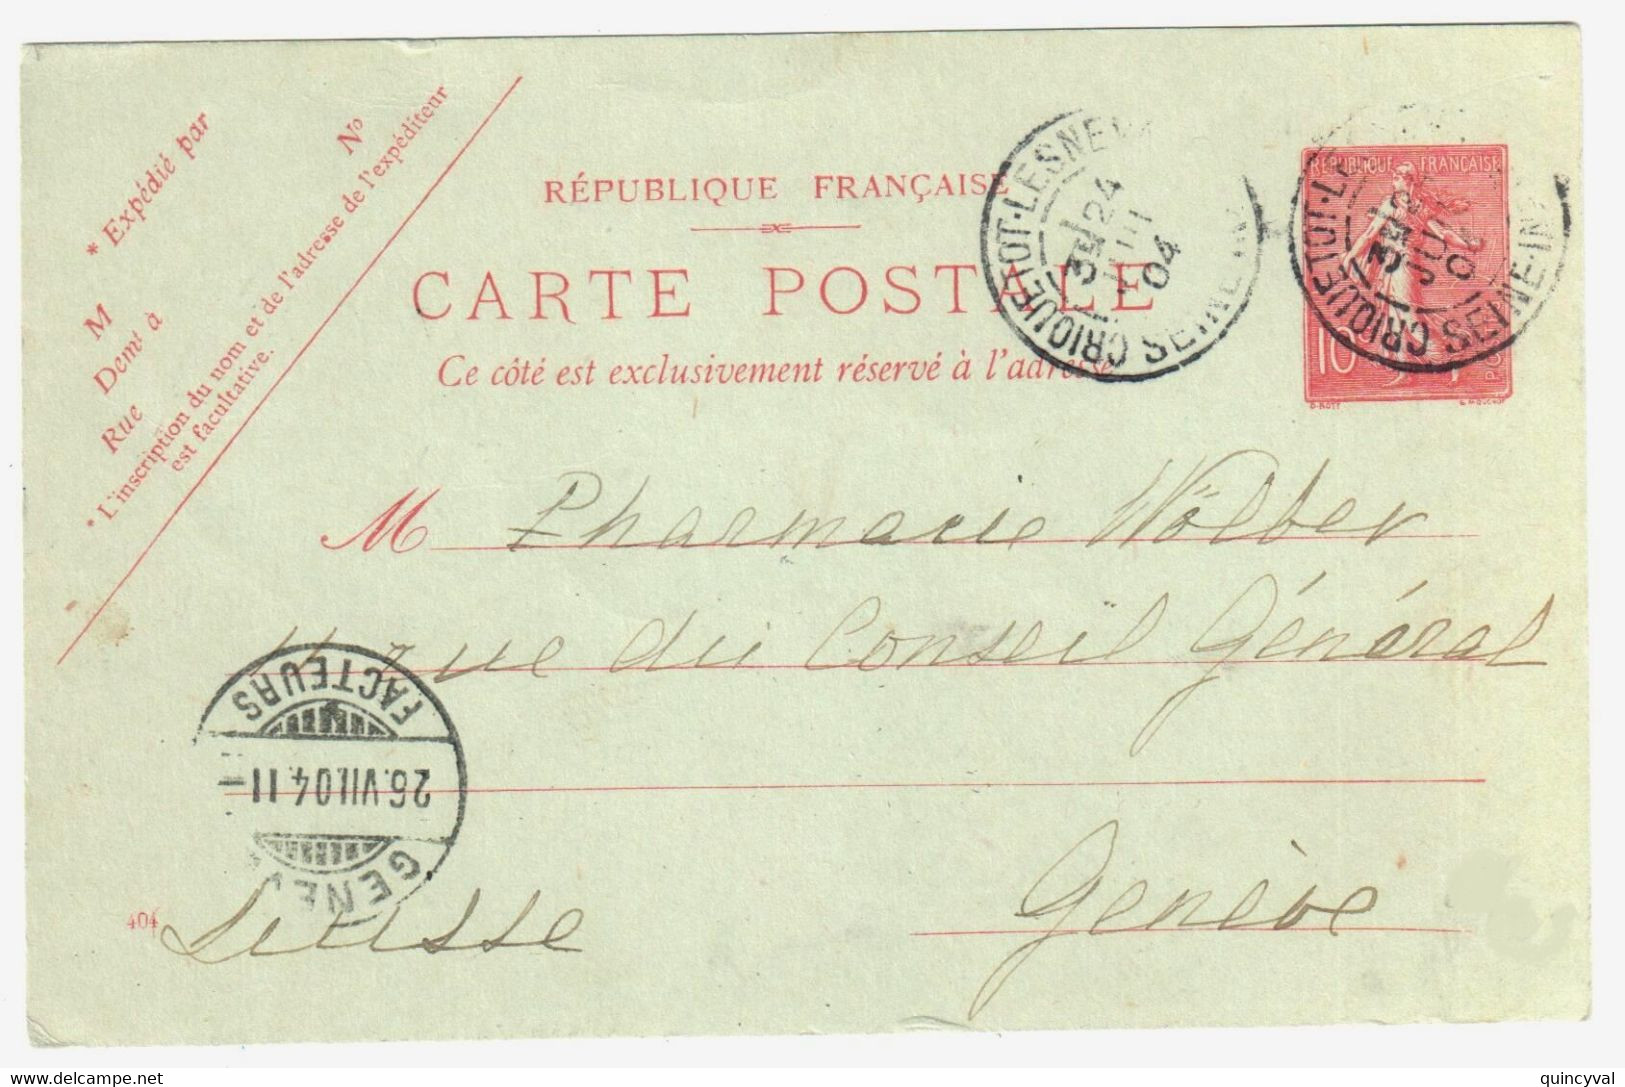 * Expédié par
M
Demt à
Rue
No
* L'inscription du nom et de l'adresse de l'expéditeur
est facultative.
RÉPUBLIQUE FRANÇAISE
CARTE POSTALE
Ce côté est exclusivement réservé à l'adresse
CRIQUETOT-LESNEV
SEINE IN
3E 24
JUIL
04
RÉPUBLIQUE FRANÇAISE
10
CRIQUETOT-L
SEINE-IN
3E
JUIL
O. ROTY
L. MOUCHON
M Pharmacie Wölber
11 rue du Conseil Général
Genève
Suisse
GENE
26.VII.04 11
FACTEURS
404
quincyval